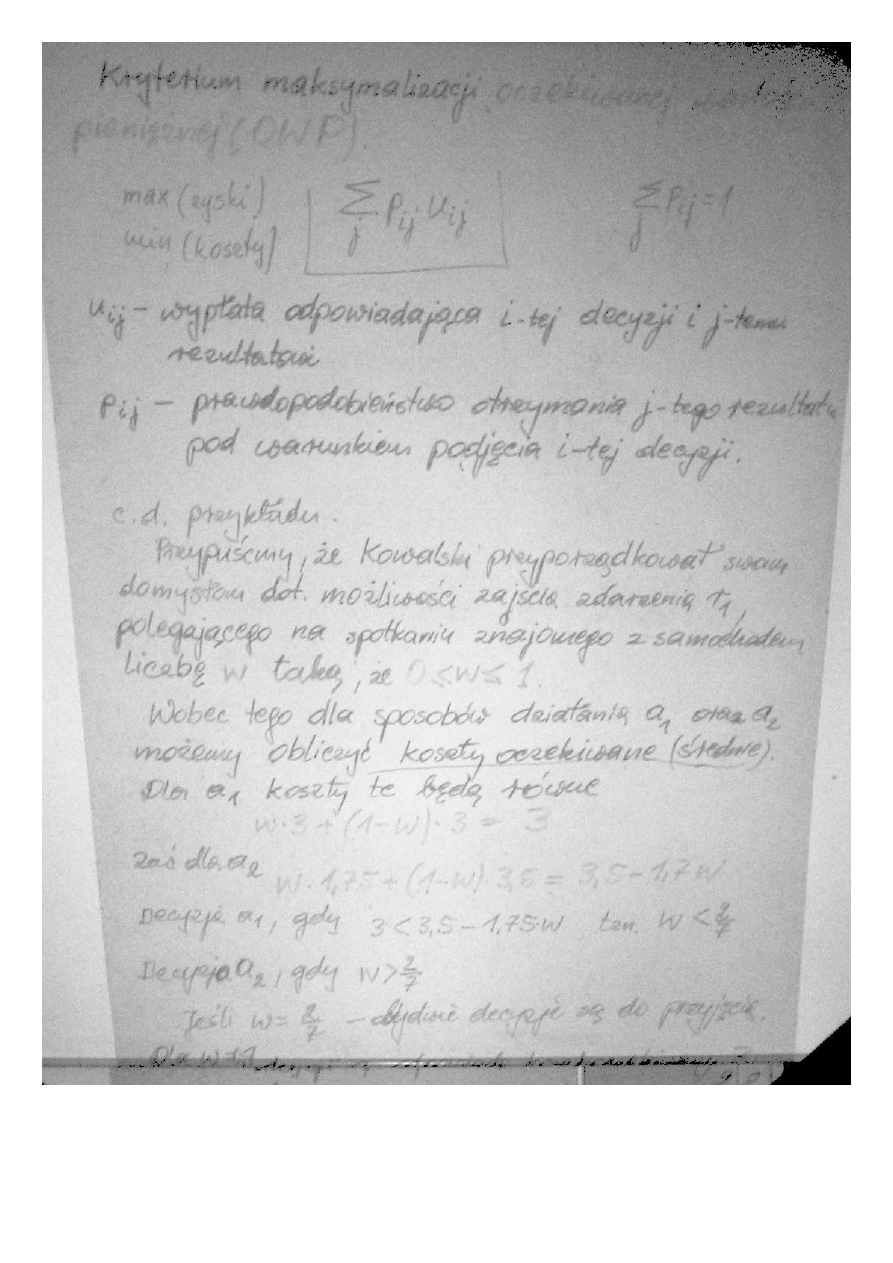 Kryterium maksymalizacji oczekiwanej
pieniężnej (OWP).
max (zyski)
min (koszty)
∑ j Pij Uij
∑ j Pij = 1
Uij – wypłata odpowiadająca i-tej decyzji i j-temu
rezultatowi
Pij – prawdopodobieństwo otrzymania j-tego rezultatu
pod warunkiem podjęcia i-tej decyzji.
c.d. przykładu.
Przypuśćmy, że Kowalski przyporządkował swym
domysłom dot. możliwości zajścia zdarzenia r1,
polegającego na spotkaniu znajomego z samochodem
liczbę w taką, że 0 ≤ w ≤ 1.
Wobec tego dla sposobów działania a1 oraz a2
możemy obliczyć koszty oczekiwane (średnie).
Dla a1 koszty te będą równe
w·3 + (1-w)·3 = 3
zaś dla a2
w·1,75 + (1-w)·3,5 = 3,5 - 1,7w
Decyzja a1, gdy 3 < 3,5 - 1,75·w tzn. w < 2/7
Decyzja a2, gdy w > 2/7
Jeśli w = 2/7 – obydwie decyzje są do przyjęcia.
Dla